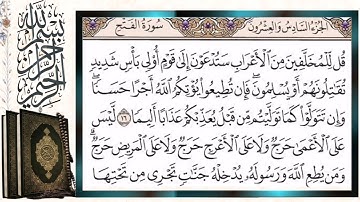 الجزء السادس والعشرون
سورة الفتح
بسم الله الرحمن الرحيم
قُل لِّلْمُخَلَّفِينَ مِنَ ٱلْأَعْرَابِ سَتُدْعَوْنَ إِلَىٰ قَوْمٍ أُو۟لِى بَأْسٍ شَدِيدٍ
تُقَٰتِلُونَهُمْ أَوْ يُسْلِمُونَ ۖ فَإِن تُطِيعُوا۟ يُؤْتِكُمُ ٱللَّهُ أَجْرًا حَسَنًا ۖ
وَإِن تَتَوَلَّوْا۟ كَمَا تَوَلَّيْتُم مِّن قَبْلُ يُعَذِّبْكُمْ عَذَابًا أَلِيمًا ١٦ لَّيْسَ
عَلَى ٱلْأَعْمَىٰ حَرَجٌ وَلَا عَلَى ٱلْأَعْرَجِ حَرَجٌ وَلَا عَلَى ٱلْمَرِيضِ حَرَجٌ ۗ
وَمَن يُطِعِ ٱللَّهَ وَرَسُولَهُۥ يُدْخِلْهُ جَنَّٰتٍ تَجْرِى مِن تَحْتِهَا